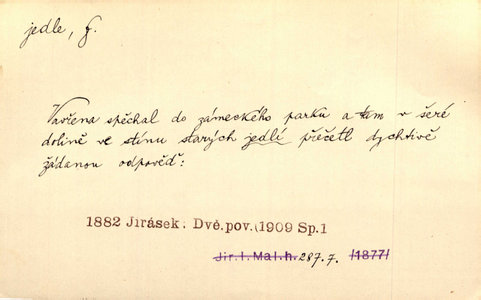 jedle, f.
Vavřena spěchal do zámeckého parku a tam v šeré
dolině ve stínu starých jedlí přečetl dychtivě
žádanou odpověď:
1882 Jirásek: Dvě.pov.(1909 Sp.1
Jir.I.Mal.h. 287.7. /1877/